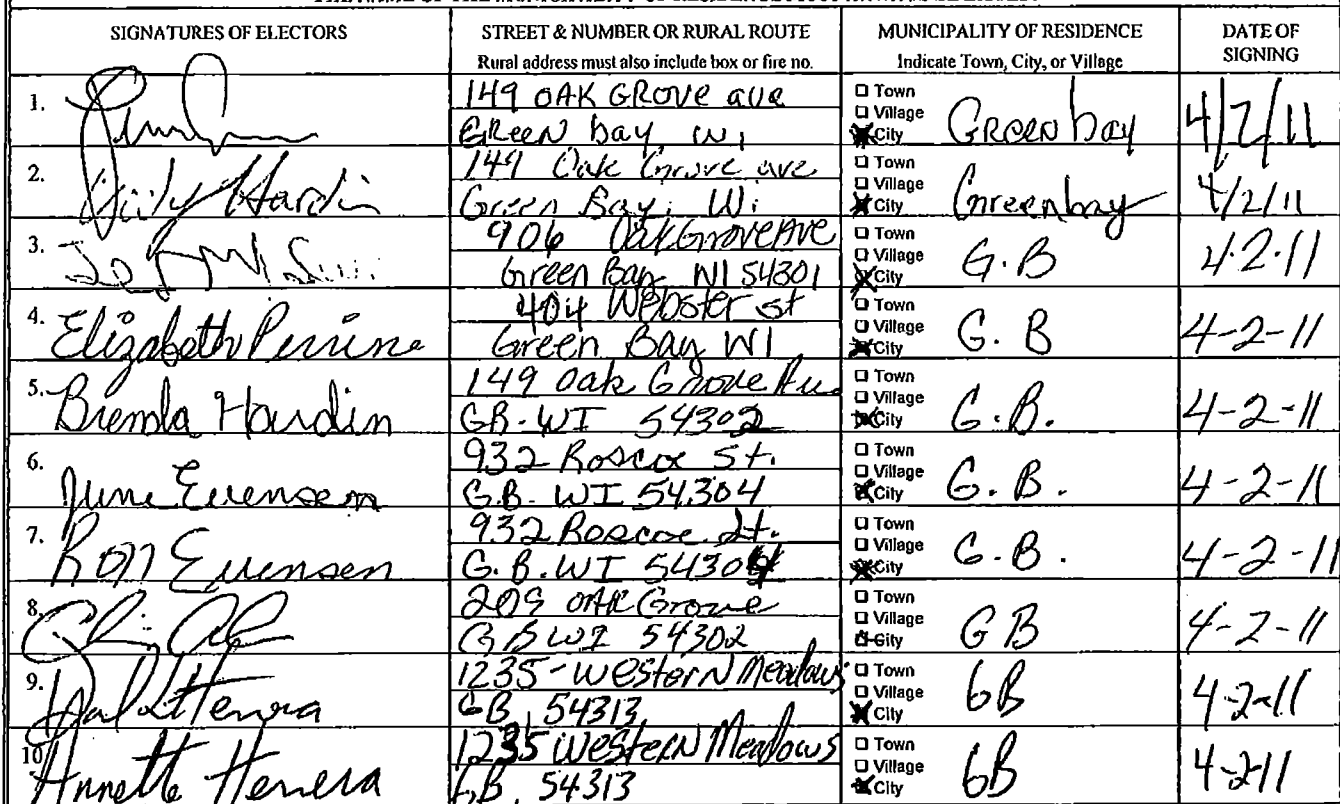 SIGNATURES OF ELECTORS
STREET & NUMBER OR RURAL ROUTE
Rural address must also include box or fire no.
MUNICIPALITY OF RESIDENCE
Indicate Town, City, or Village
DATE OF
SIGNING
1.
149 OAK GROVE ave
GReen bay WI
Town
Village
City
GReen bay
4/2/11
2.
Hardin
149 Oak Grove ave
Green Bay, Wi
Town
Village
City
Greenbay
4/2/11
3.
906 Oak Grove Ave
Green Bay WI 54301
Town
Village
City
G.B
4.2.11
4.
Elizabeth Perrine
404 Webster st
Green Bay WI
Town
Village
City
G. B
4-2-11
5.
Brenda Hardin
149 Oak Grove Ave
GB. WI 54302
Town
Village
City
G.B.
4-2-11
6.
June Evensen
932 Roscoe St.
G.B. WI 54304
Town
Village
City
G. B.
4-2-11
7.
Ron Evensen
932 Roscoe St.
G.B. WI 54304
Town
Village
City
G.B.
4-2-11
8.
209 OAK Grove
GB WI 54302
Town
Village
City
GB
4-2-11
9.
Herrera
1235-Western Meadows
GB, 54313
Town
Village
City
GB
4-2-11
10
Annette Herrera
1235 Western Meadows
GB, 54313
Town
Village
City
GB
4-2-11